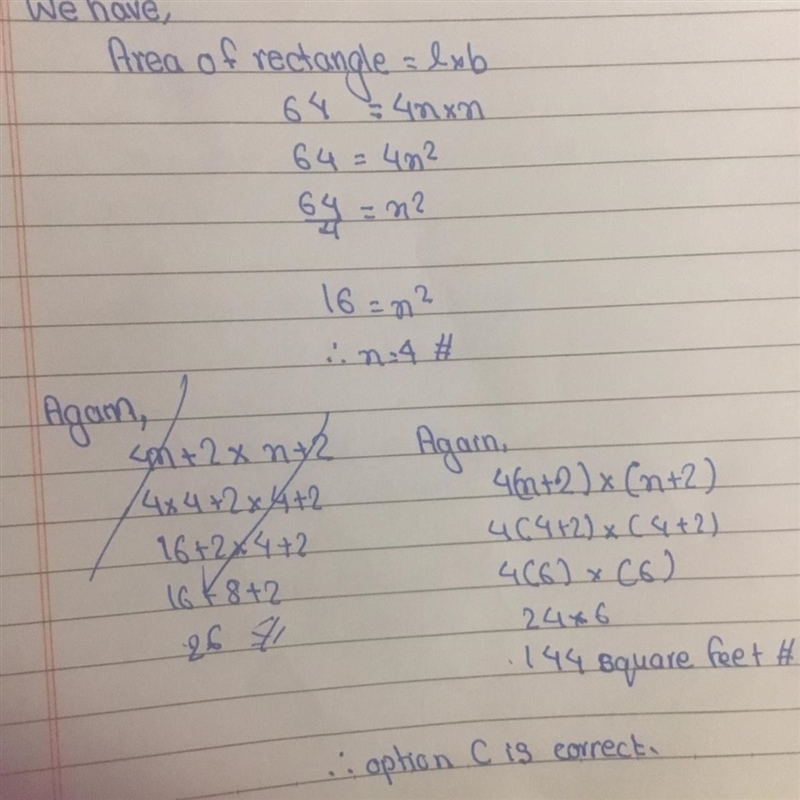 We have,
Area of rectangle = l×b
64 = 4n×n
64 = 4n²
64/4 = n²
16 = n²
∴ n=4 #
Again,
4n+2×n+2
4×4+2×4+2
16+2×4+2
16+8+2
26 #
Again,
4(n+2)×(n+2)
4(4+2)×(4+2)
4(6)×(6)
24×6
144 square feet #
∴ option C is correct.